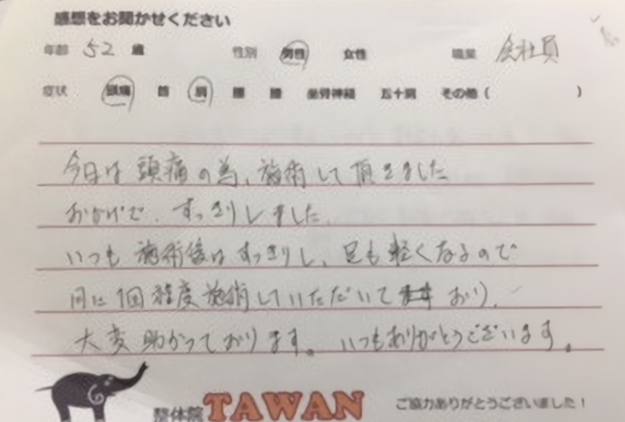 感想をお聞かせください
年齢 52 歳 性別 男性 女性 職業 会社員
症状 頭痛 首 肩 腰 膝 坐骨神経 五十肩 その他( )
今日は頭痛の為、施術して頂きました
おかげで、すっきりしました。
いつも施術後はすっきりし、足も軽くなるので
月に1回程度施術していただいており、
大変助かっております。いつもありがとうございます。
整体院 TAWAN ご協力ありがとうございました!